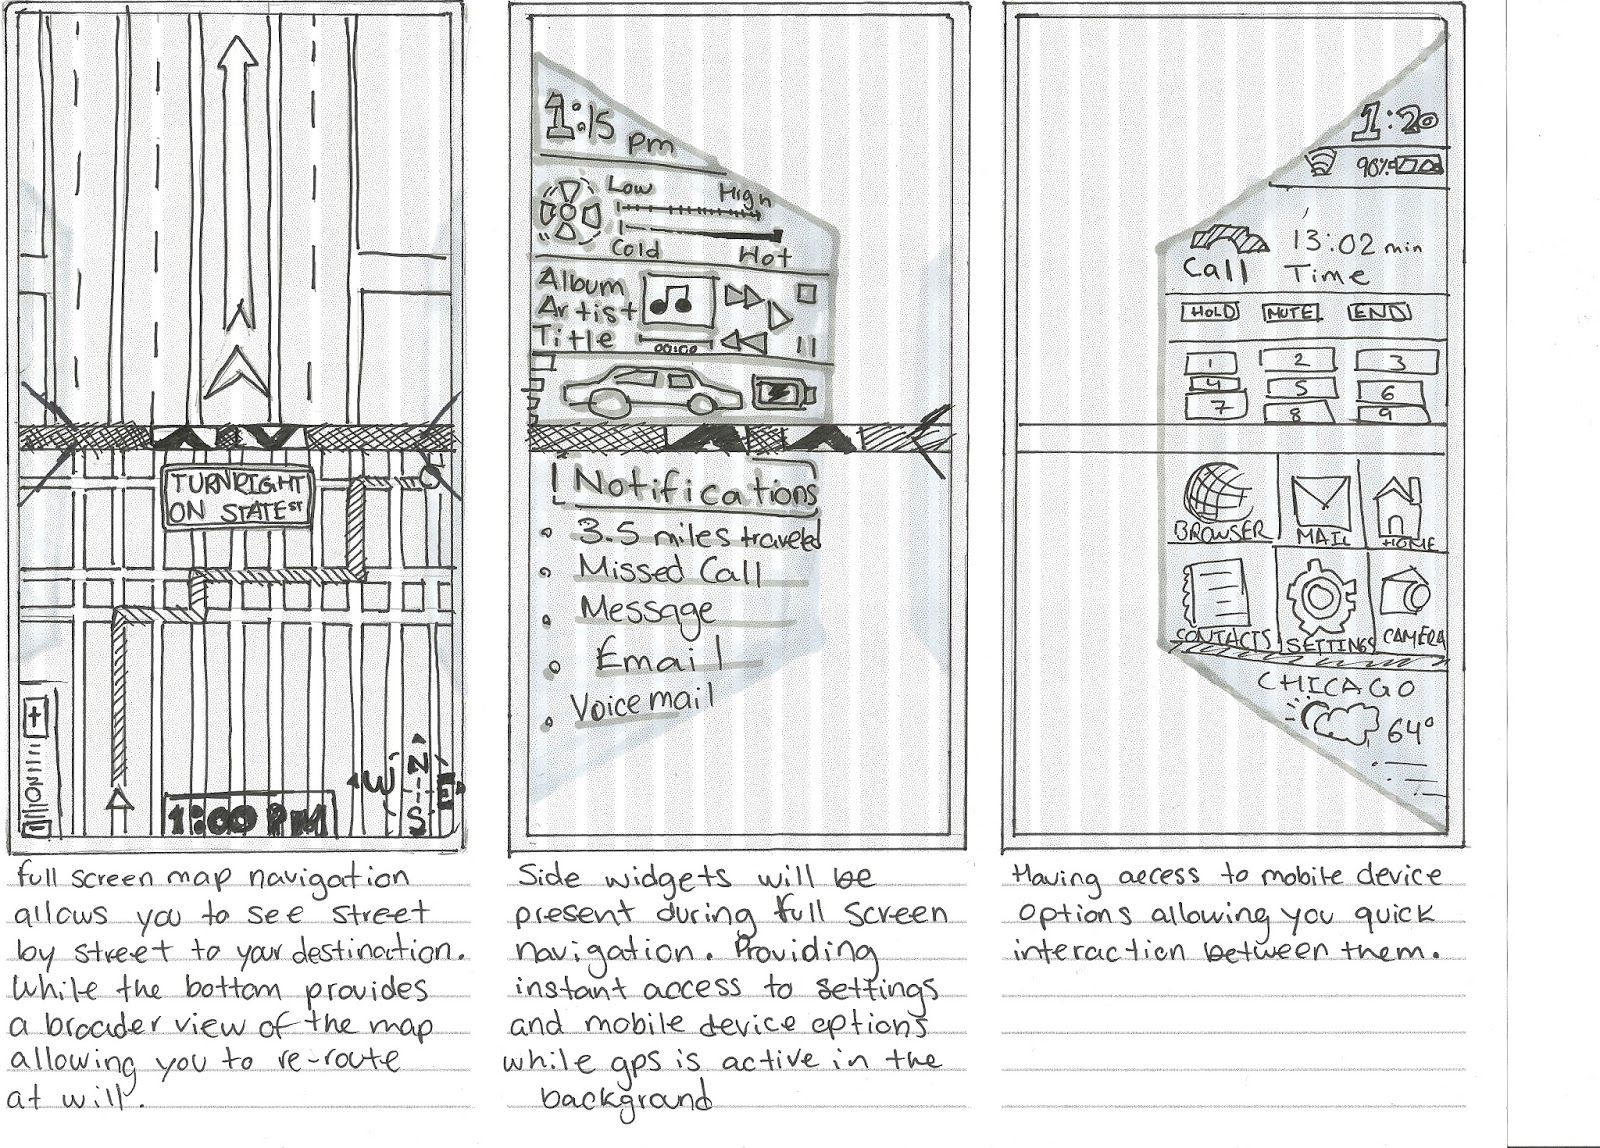 TURN RIGHT
ON STATE ST
N
W E
S
1:00 PM
full screen map navigation
allows you to see street
by street to your destination.
While the bottom provides
a broader view of the map
allowing you to re-route
at will.
1:15 pm
Low High
Cold Hot
Album
Artist
Title
00:00
Notifications
3.5 miles traveled
Missed Call
Message
Email
Voicemail
Side widgets will be
present during full screen
navigation. Providing
instant access to settings
and mobile device options
while gps is active in the
background
1:20
98%
13:02 min
Call Time
HOLD MUTE END
1 2 3
4 5 6
7 8 9
BROWSER MAIL HOME
CONTACTS SETTINGS CAMERA
CHICAGO
64°
Having access to mobile device
options allowing you quick
interaction between them.